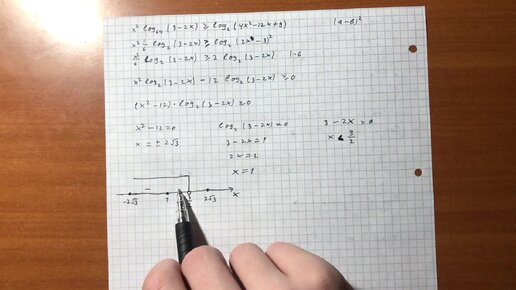 x² log₆₄ (3-2x) ≥ log₂ (4x²-12x+9) (a-b)²
x² 1/6 log₂ (3-2x) ≥ log₂ (2x-3)²
x²/6 log₂ (3-2x) ≥ 2 log₂ (3-2x) |·6
x² log₂ (3-2x) - 12 log₂ (3-2x) ≥ 0
(x²-12) · log₂ (3-2x) ≥ 0
x²-12=0 log₂ (3-2x)=0 3-2x > 0
x = ± 2√3 3-2x=1 x < 3/2
2x=2
x=1
-
-2√3 1 2√3 x